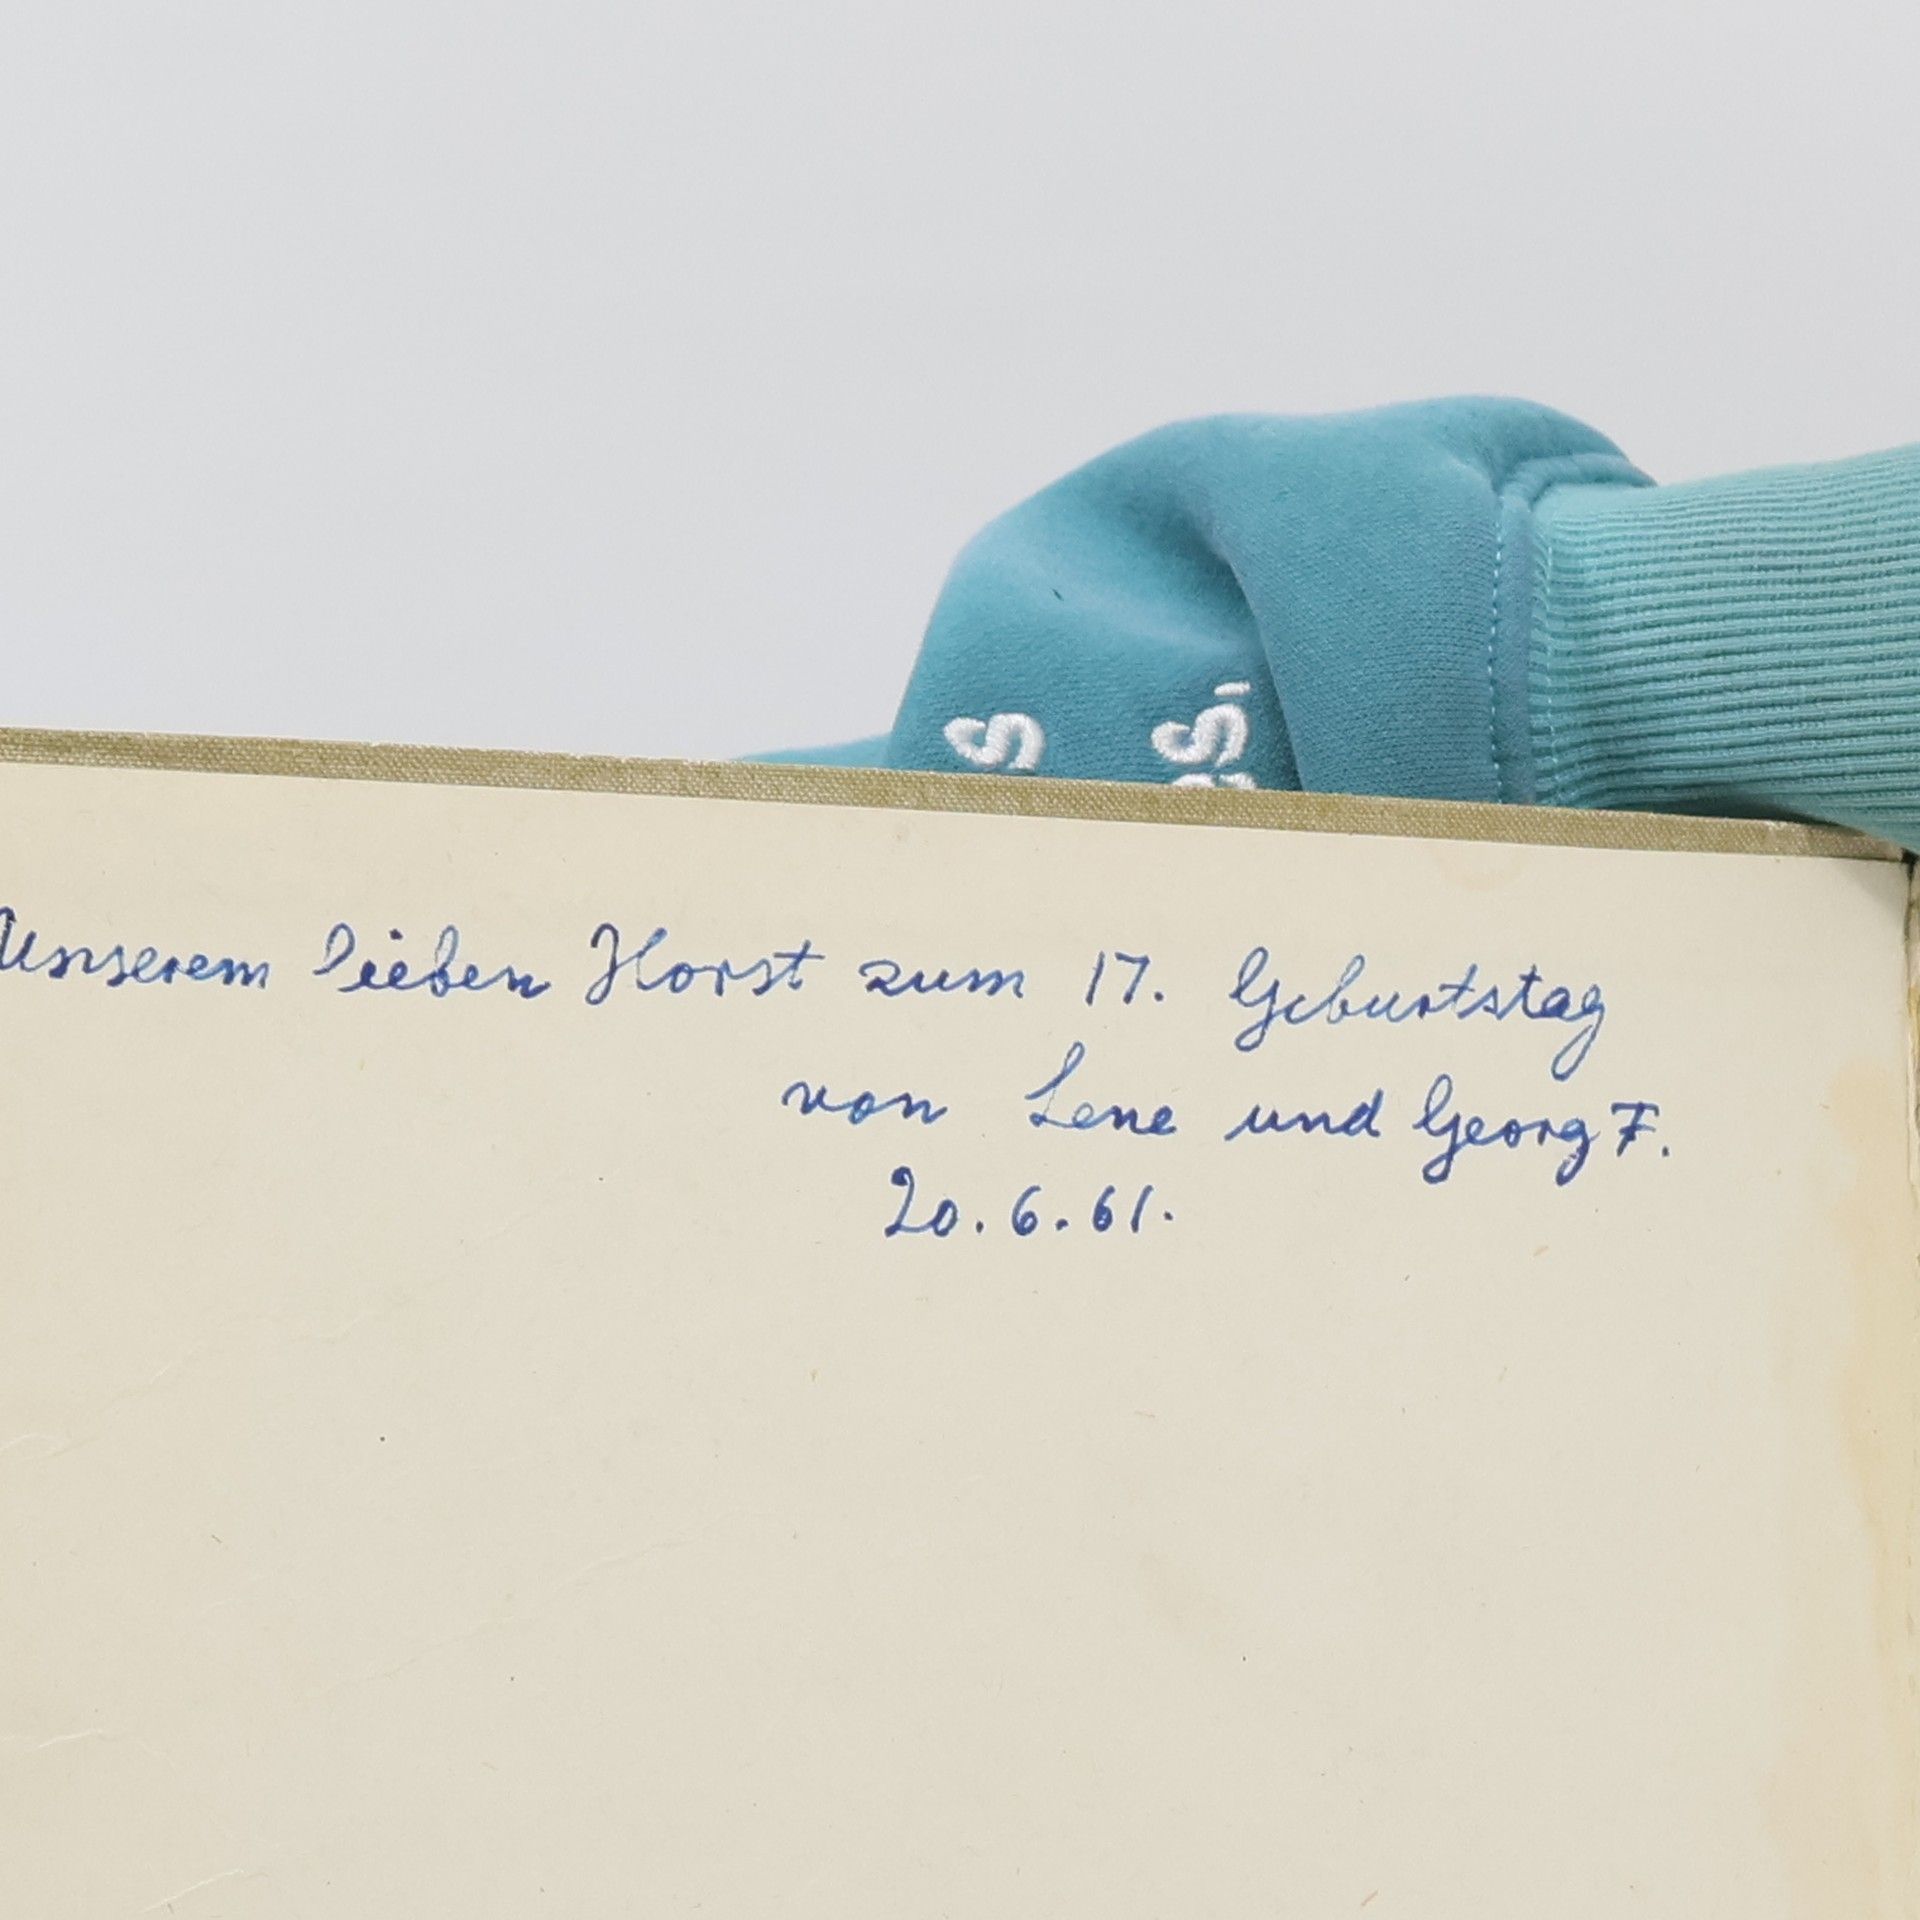 Unserem lieben Horst zum 17. Geburtstag
von Lene und Georg F.
20.6.61.